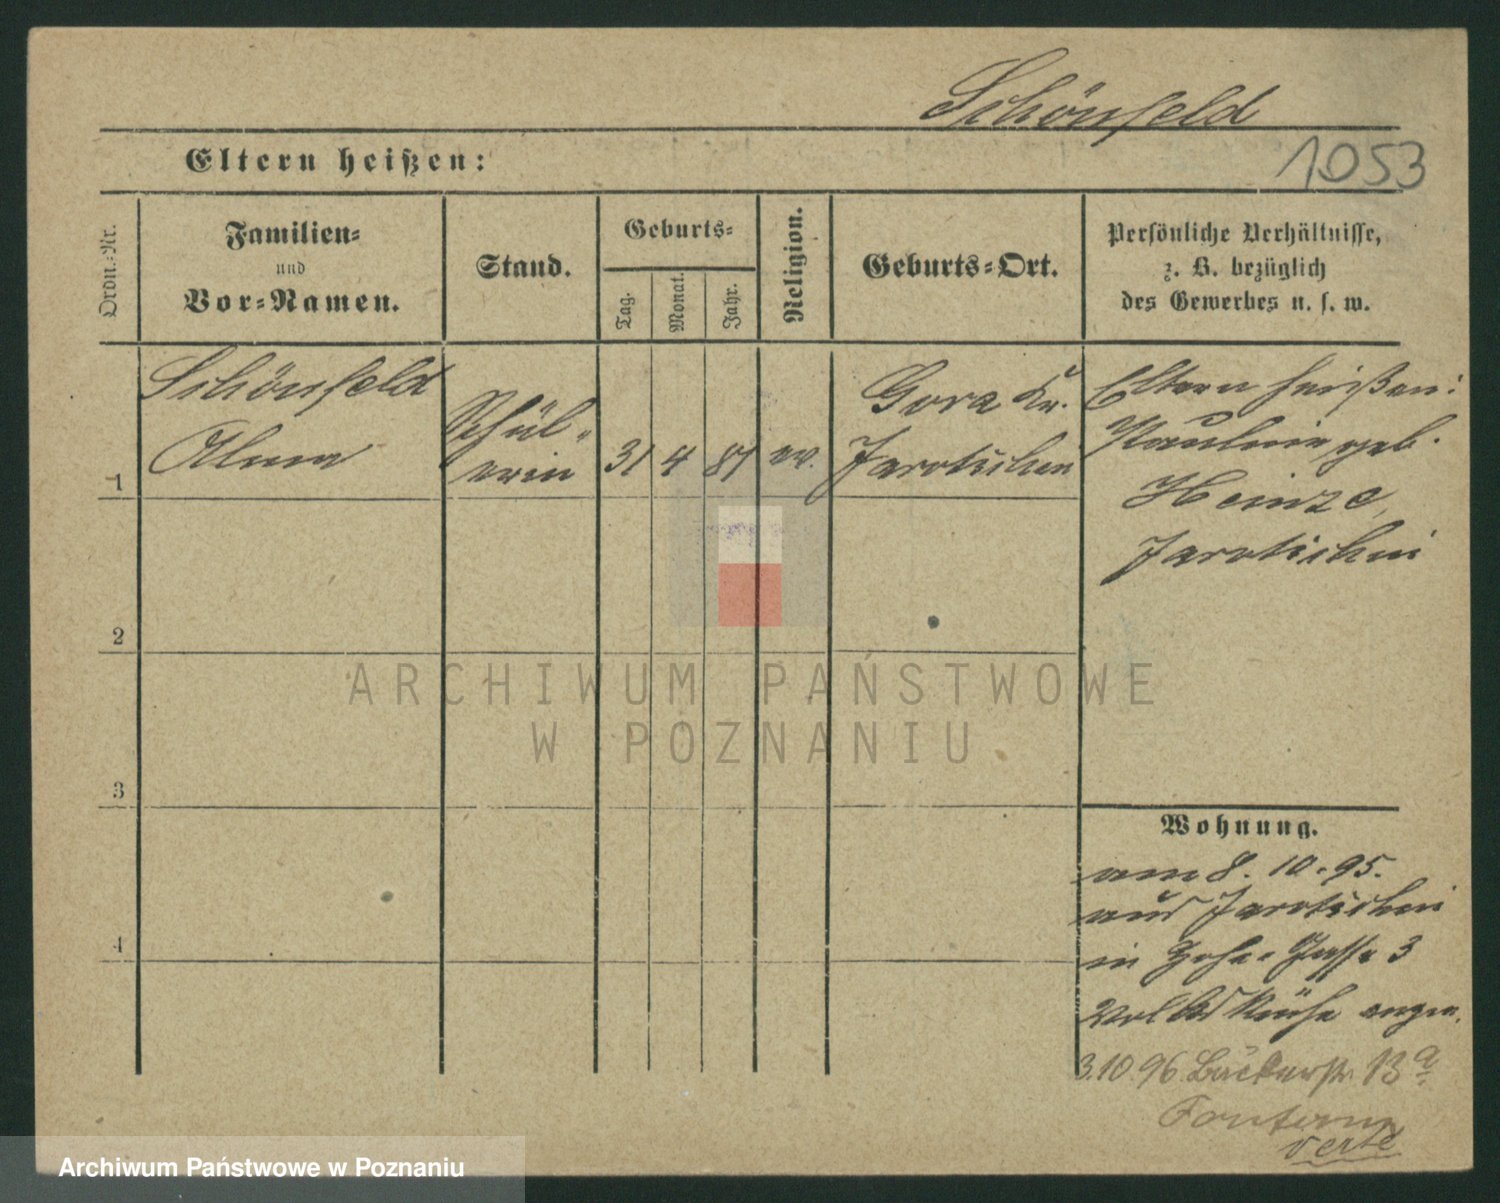 Schönfeld
1053
Eltern heißen:
Ordn.-Nr.
Familien-
und
Vor-Namen.
Stand.
Geburts-
Tag.
Monat.
Jahr.
Religion.
Geburts-Ort.
Persönliche Verhältnisse,
z. B. bezüglich
des Gewerbes u. s. w.
1
Schönfeld
Alma
Schül-
erin
31
4
81
ev.
Gora Kr.
Jarotschin
Eltern heißen:
Pauline geb.
Heinze,
Jarotschin
2
3
4
Wohnung.
am 8.10.95.
aus Jarotschin
in Gasse 3
Volksküche angem.
3.10.96 Bäckerstr. 13a
verte
ARCHIWUM PAŃSTWOWE
W POZNANIU
Archiwum Państwowe w Poznaniu